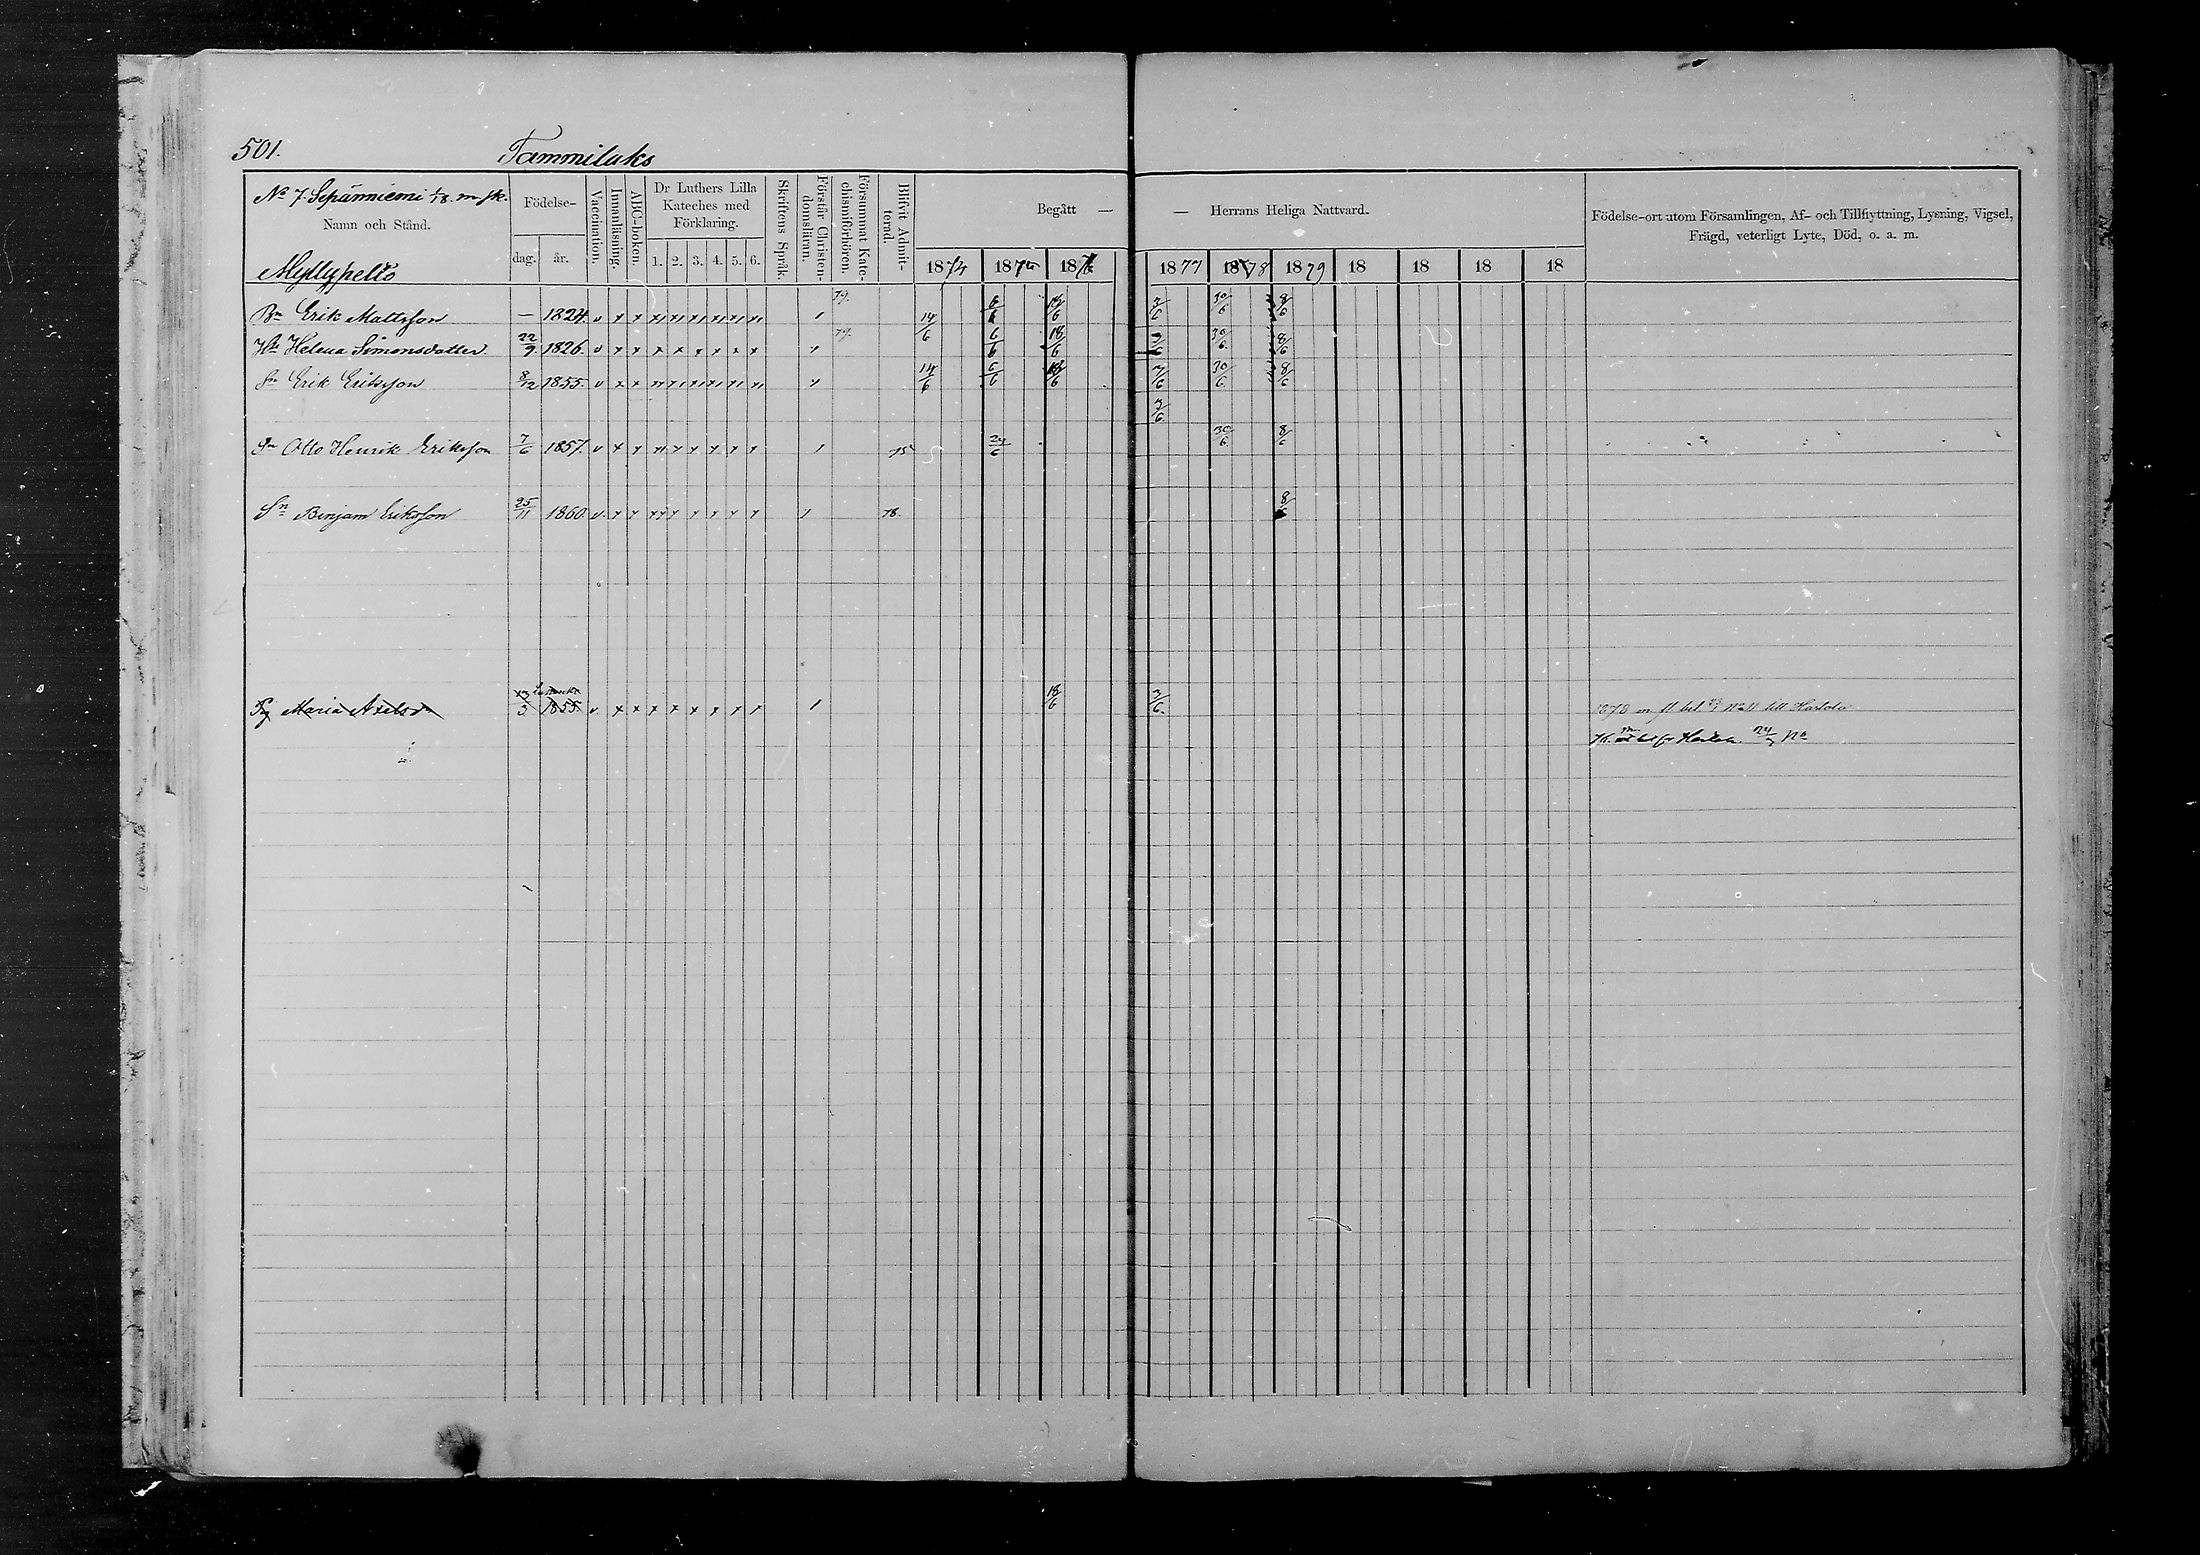 501. Tammiluks
No 7 Sepänniemi 1/8 m. sk.
Namn och Stånd.
Födelse-
dag. år.
Vaccination.
Innanläsning.
ABC-boken.
Dr Luthers Lilla Kateches med Förklaring.
1. 2. 3. 4. 5. 6.
Skriftens Språk.
Förstår Christendomsläran.
Försummat Katechismiförhören.
Blifvit Admitterad.
Begått — — Herrans Heliga Nattvard.
1874 1875 1876 1877 1878 1879 18 18 18 18
Födelse-ort utom Församlingen, Af- och Tillflyttning, Lysning, Vigsel,
Frägd, veterligt Lyte, Död, o. a. m.
Myllypelto
Bn Erik Mattsson — 1824 v x x 79. 14/6 6/6 18/6 3/6 30/6 8/6
Hu Helena Simonsdotter 22/9 1826. v x x x x x x x x 79. 6/6 18/6 3/6 30/6 8/6
Sn Erik Eriksson 8/12 1855. v x x 14/6 6/6 18/6 3/6 30/6 8/6
3/6
Sn Otto Henrik Eriksson 7/6 1857. v x x 75 24/6 30/6 8/6
Sn Benjam Eriksson 25/11 1860. v. x x 78. 8/6
Pig Maria Axelsdr 13/3 1855. v. x x x x x x x x 18/6 3/6 1878 m fl bet No 11 till Hartola